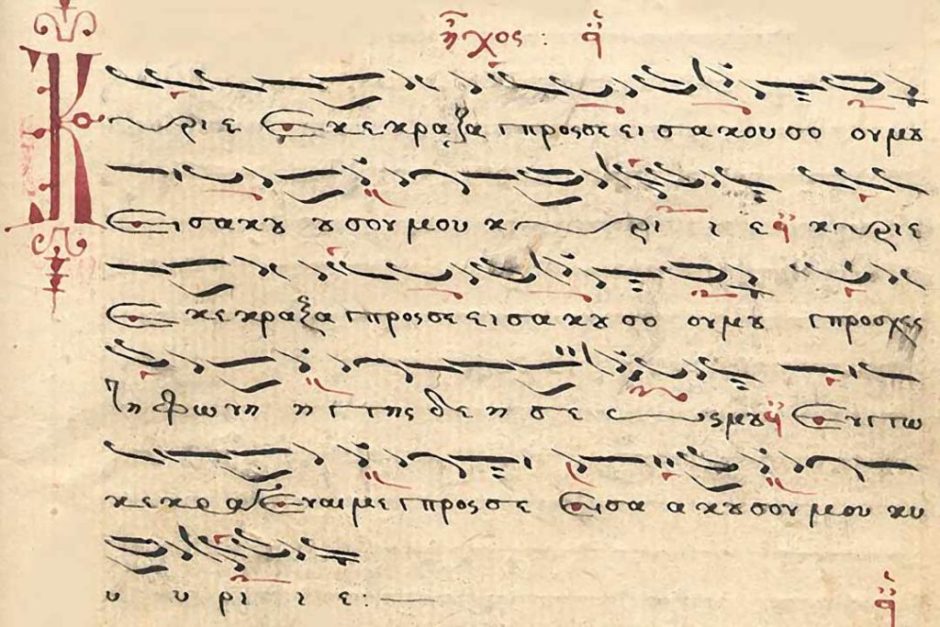 ἦχος : q̈
Κυριε Εκεκραξα προςσε εισακουσο ουμȣ
Εισακȣ ȣσουμου κυρι ι ε q̈ κυριε
Εκεκραξα προςσε εισακȣσο ουμȣ προσχες
τη φωνη η της δε η σε ωςμȣ q̈ Εν τω
κεκραγεναι με προςσε Εισα ακȣσουμου κυ
υ υρι ι ε :
q̈